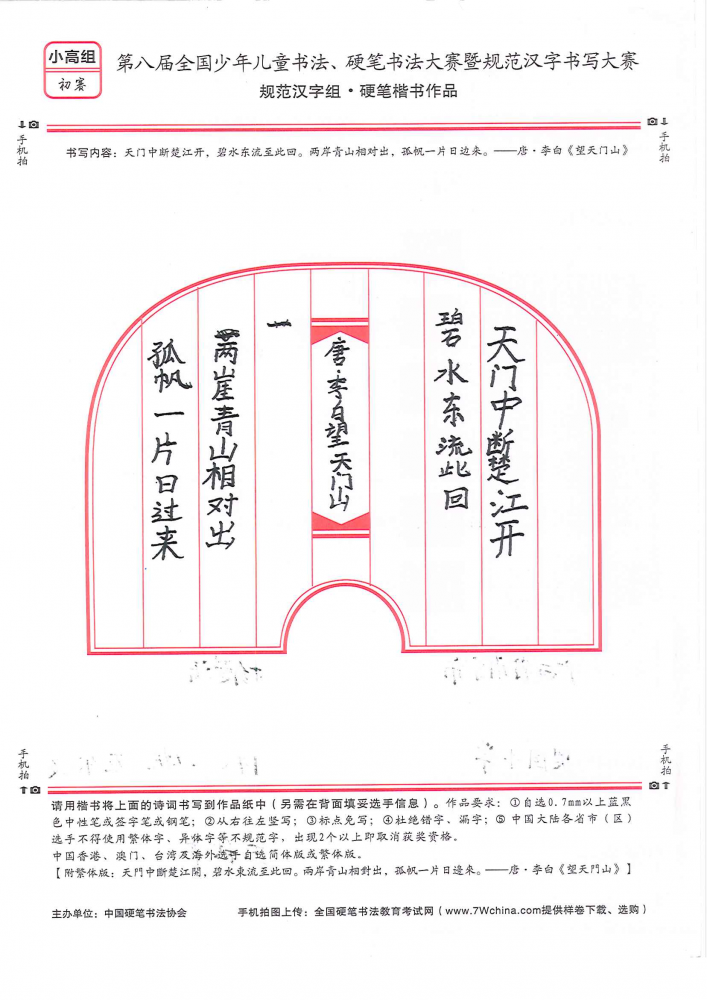 小高组
初赛
第八届全国少年儿童书法、硬笔书法大赛暨规范汉字书写大赛
规范汉字组·硬笔楷书作品
手机拍
手机拍
书写内容：天门中断楚江开，碧水东流至此回。两岸青山相对出，孤帆一片日边来。——唐·李白《望天门山》
天门中断楚江开
碧水东流此回
唐·李白望天门山
一
两崖青山相对出
孤帆一片日过来
手机拍
手机拍
请用楷书将上面的诗词书写到作品纸中（另需在背面填妥选手信息）。作品要求：①自选0.7mm以上蓝黑
色中性笔或签字笔或钢笔；②从右往左竖写；③标点免写；④杜绝错字、漏字；⑤中国大陆各省市（区）
选手不得使用繁体字、异体字等不规范字，出现2个以上即取消获奖资格。
中国香港、澳门、台湾及海外选手自选简体版或繁体版。
【附繁体版：天門中斷楚江開，碧水東流至此回。兩岸青山相對出，孤帆一片日邊來。——唐·李白《望天門山》】
主办单位：中国硬笔书法协会
手机拍图上传：全国硬笔书法教育考试网（www.7Wchina.com提供样卷下载、选购）